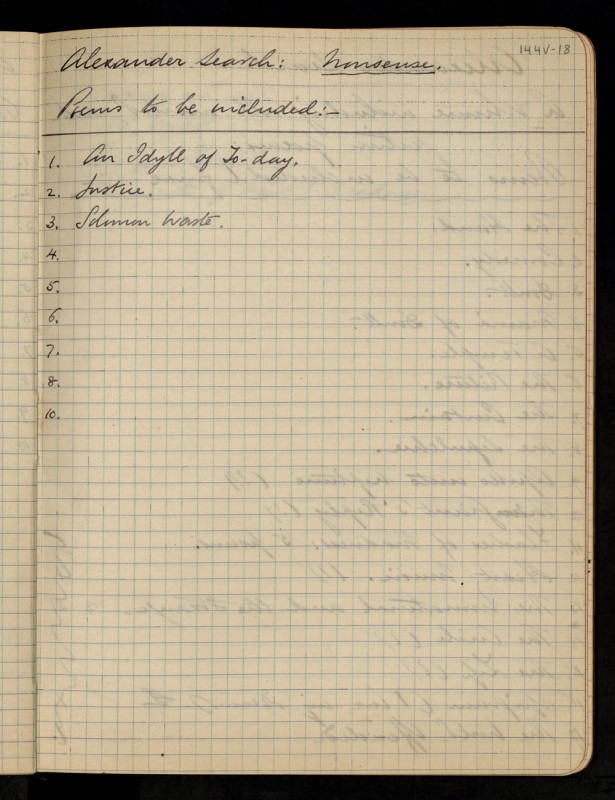 144V-18
Alexander Search: Nonsense.
Poems to be included:-
1. An Idyll of To-day.
2. Justice.
3. Solomon Waste.
4.
5.
6.
7.
8.
10.